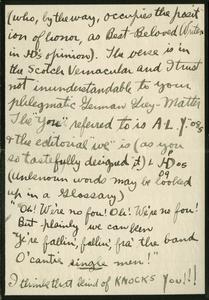 (who, by the way, occupies the posit
ion of honor, as Best-Beloved Writer
in His opinion). The verse is in
the Scotch Vernacular and I trust
not inunderstandable to your
phlegmatic German Grey-Matter
The "you" referred to is A.L.
& the editorial "we" is (as you
so tastefully designed it)
(unknown words may be looked
up in a Glossary)
"Oh! We're no fou! Oh! We're no fou!
But plainly we can see
Ye're fallin', fallin', fra' the band
O' cantie single men!"
I think that kind of KNOCKS You!!!